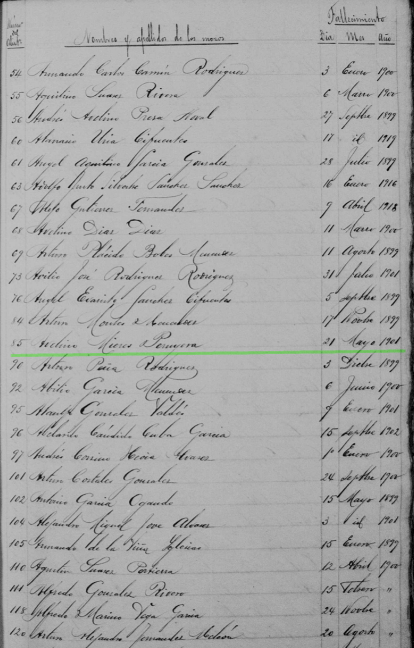 Fallecimiento
Nombres y apellidos de los mozos Día Mes Año
54 Armando Carlos Camín Rodriguez 3 Enero 1900
55 Aquilino Suarez Rivera 6 Marzo 1900
56 Andrés Avelino Presa Noval 27 Septbre 1899
60 Atanasio Uría Cifuentes 17 id 1919
61 Angel Aquilino García Gonzalez 28 Julio 1899
63 Adolfo Sanchez Sanchez 16 Enero 1916
67 Gutierrez Fernandez 9 Abril 1913
68 Avelino Diaz Diaz 11 Marzo 1900
69 Arturo Plácido Bobes 11 Agosto 1899
75 José Rodriguez Rodriguez 31 Julio 1901
76 Angel Sanchez Cifuentes 5 Septbre 1899
84 Arturo Montes 17 Novbre 1899
85 Avelino Mieres 21 Mayo 1901
90 Arturo Rodriguez 3 Dicbre 1899
92 Abilio García 6 Junio 1900
95 Gonzalez Valdés 9 Enero 1901
96 Abelardo Cándido García 15 Septbre 1902
97 Andrés Alvarez 1º Enero 1900
101 Arturo Gonzalez 24 Septbre 1900
102 Antonio García Ogando 15 Mayo 1899
104 Alejandro Miguel Jose Alvarez 3 id 1901
105 Armando de la Viña Iglesias 15 Enero 1899
110 Agustín Suarez 12 Abril 1900
111 Alfredo Gonzalez Rivero 15 Febrero "
118 Marino Vega García 24 Novbre "
120 Arturo Alejandro Fernandez 20 Agosto "